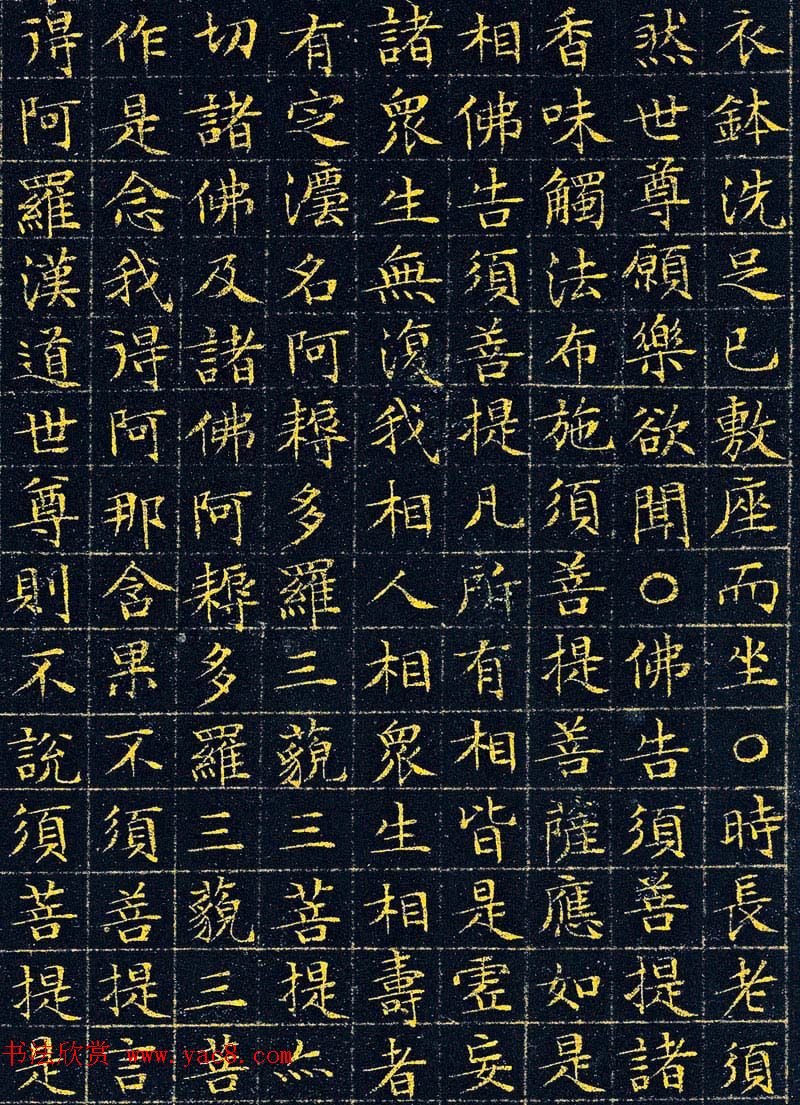 衣鉢洗足已敷座而坐〇時長老須
然世尊願樂欲聞〇佛告須菩提諸
香味觸法布施須菩提菩薩應如是
相佛告須菩提凡所有相皆是虛妄
諸眾生無復我相人相眾生相壽者
有定灋名阿耨多羅三藐三菩提亦
切諸佛及諸佛阿耨多羅三藐三菩
作是念我得阿那含果不須菩提言
得阿羅漢道世尊則不說須菩提是
书法欣赏 www.yac8.com